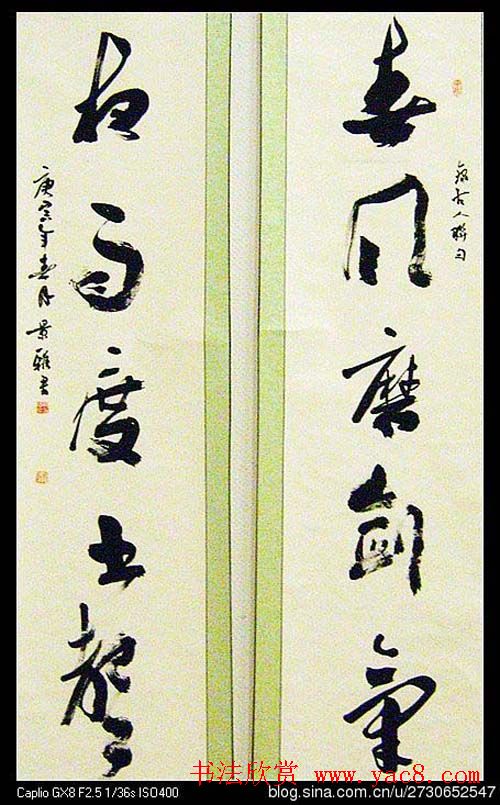 春風磨劍氣
錄古人聯句
夜雨度書聲
庚寅年春月景雅書
书法欣赏 www.yac8.com
Caplio GX8 F2.5 1/36s ISO400
blog.sina.com.cn/u/2730652547